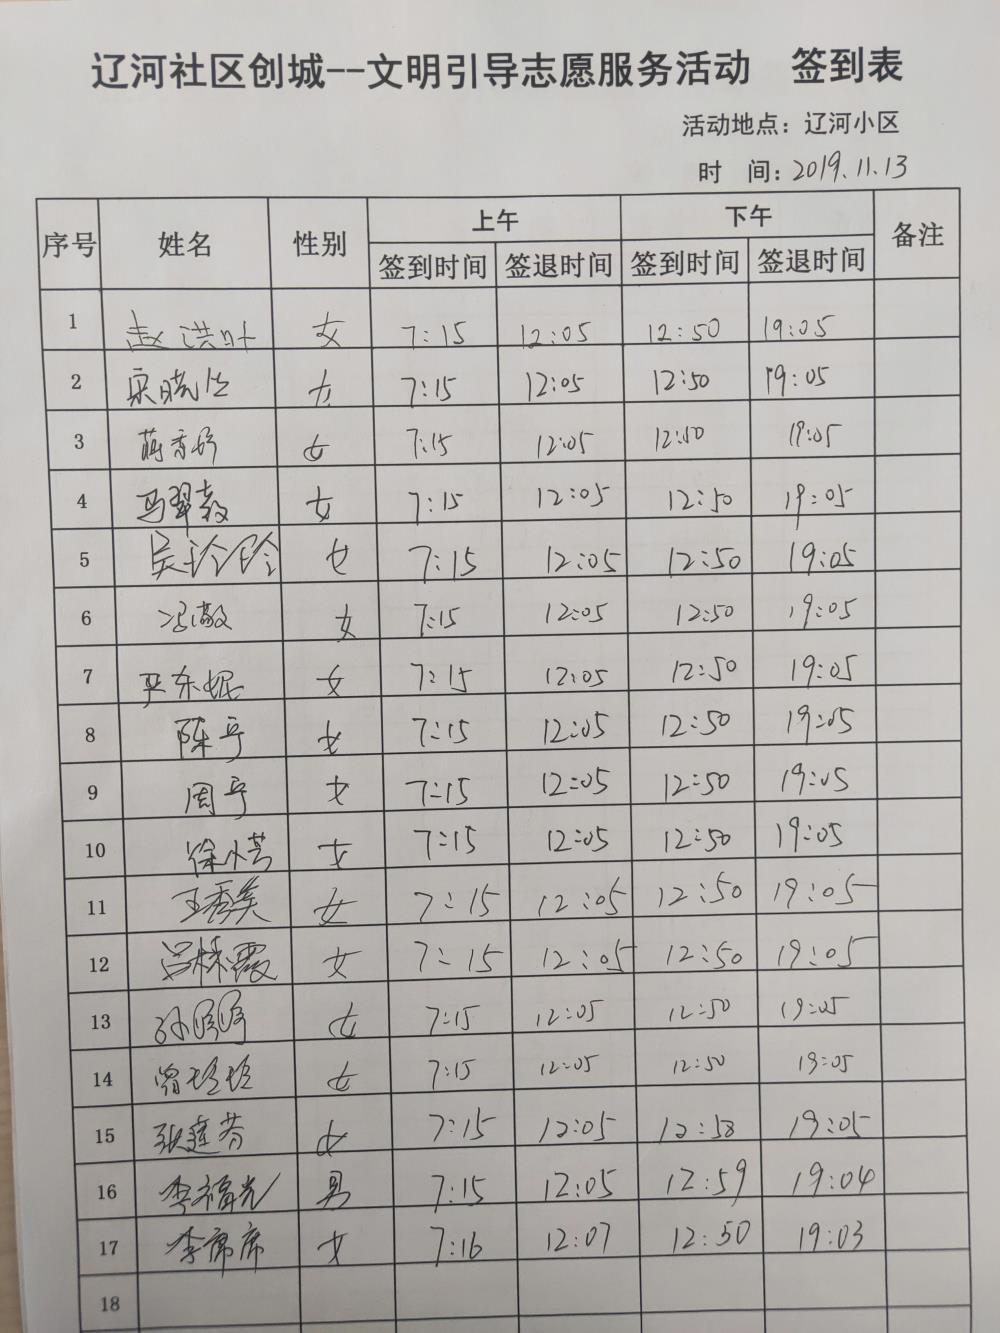 辽河社区创城--文明引导志愿服务活动 签到表
活动地点：辽河小区
时 间：2019.11.13
序号 姓名 性别 上午 下午 备注
签到时间 签退时间 签到时间 签退时间
1 赵洪叶 女 7:15 12:05 12:50 19:05
2 女 7:15 12:05 12:50 19:05
3 女 7:15 12:05 12:50 19:05
4 马翠 女 7:15 12:05 12:50 19:05
5 吴玲玲 女 7:15 12:05 12:50 19:05
6 冯敬 女 7:15 12:05 12:50 19:05
7 东妮 女 7:15 12:05 12:50 19:05
8 陈 女 7:15 12:05 12:50 19:05
9 周 女 7:15 12:05 12:50 19:05
10 徐小芸 女 7:15 12:05 12:50 19:05
11 王秀美 女 7:15 12:05 12:50 19:05
12 吕林霞 女 7:15 12:05 12:50 19:05
13 孙 女 7:15 12:05 12:50 19:05
14 曾玲玲 女 7:15 12:05 12:50 19:05
15 女 7:15 12:05 12:58 19:05
16 李福光 男 7:15 12:05 12:59 19:04
17 李席席 女 7:16 12:07 12:50 19:03
18